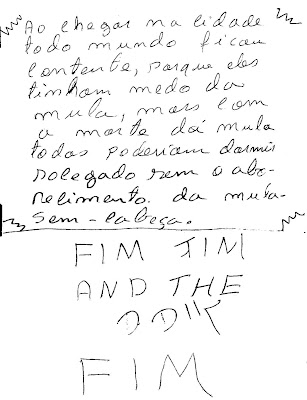 Ao chegar na cidade
todo mundo ficou
contente, porque eles
tinham medo da
mula, mas com
a morte da mula
todos poderiam dormir
solegado sem o abo-
recimento da mula-
sem-cabeça.
FIM FIM
AND THE
FIM